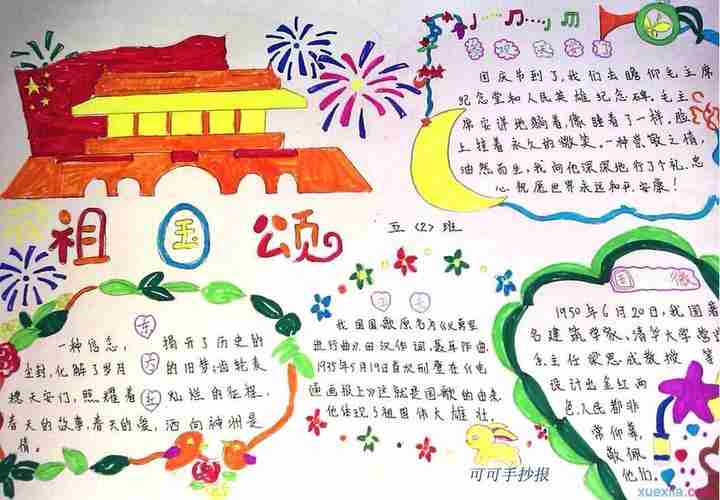 国庆节到了,我们去瞻仰毛主席
纪念堂和人民英雄纪念碑。毛主
席安详地躺着,像睡着了一样。脸
上挂着永久的微笑。一种崇敬之情,
油然而生,我向他深深地行了个礼。忠
心祝愿世界永远和平、安康!
祖国颂
五〈2〉班
一种信念,
揭开了历史的
尘封,化解了岁月
的旧梦;齿轮表
穗天安门,照耀着
灿烂的征程,
春天的故事,春天的爱,洒向神洲是
情。
我国国歌原名为《义勇军
进行曲》,田汉作词,聂耳作曲。
1935年5月19日首次刊登在《电
通画报上》这就是国歌的由来,
他体现了祖国伟大雄壮。
国徽
1950年6月20日,我国著
名建筑学家、清华大学营
系主任梁思成教授
设计出金红两
色,人民都非
常仰慕,
敬佩
他们。
可可手抄报
xuexila.com